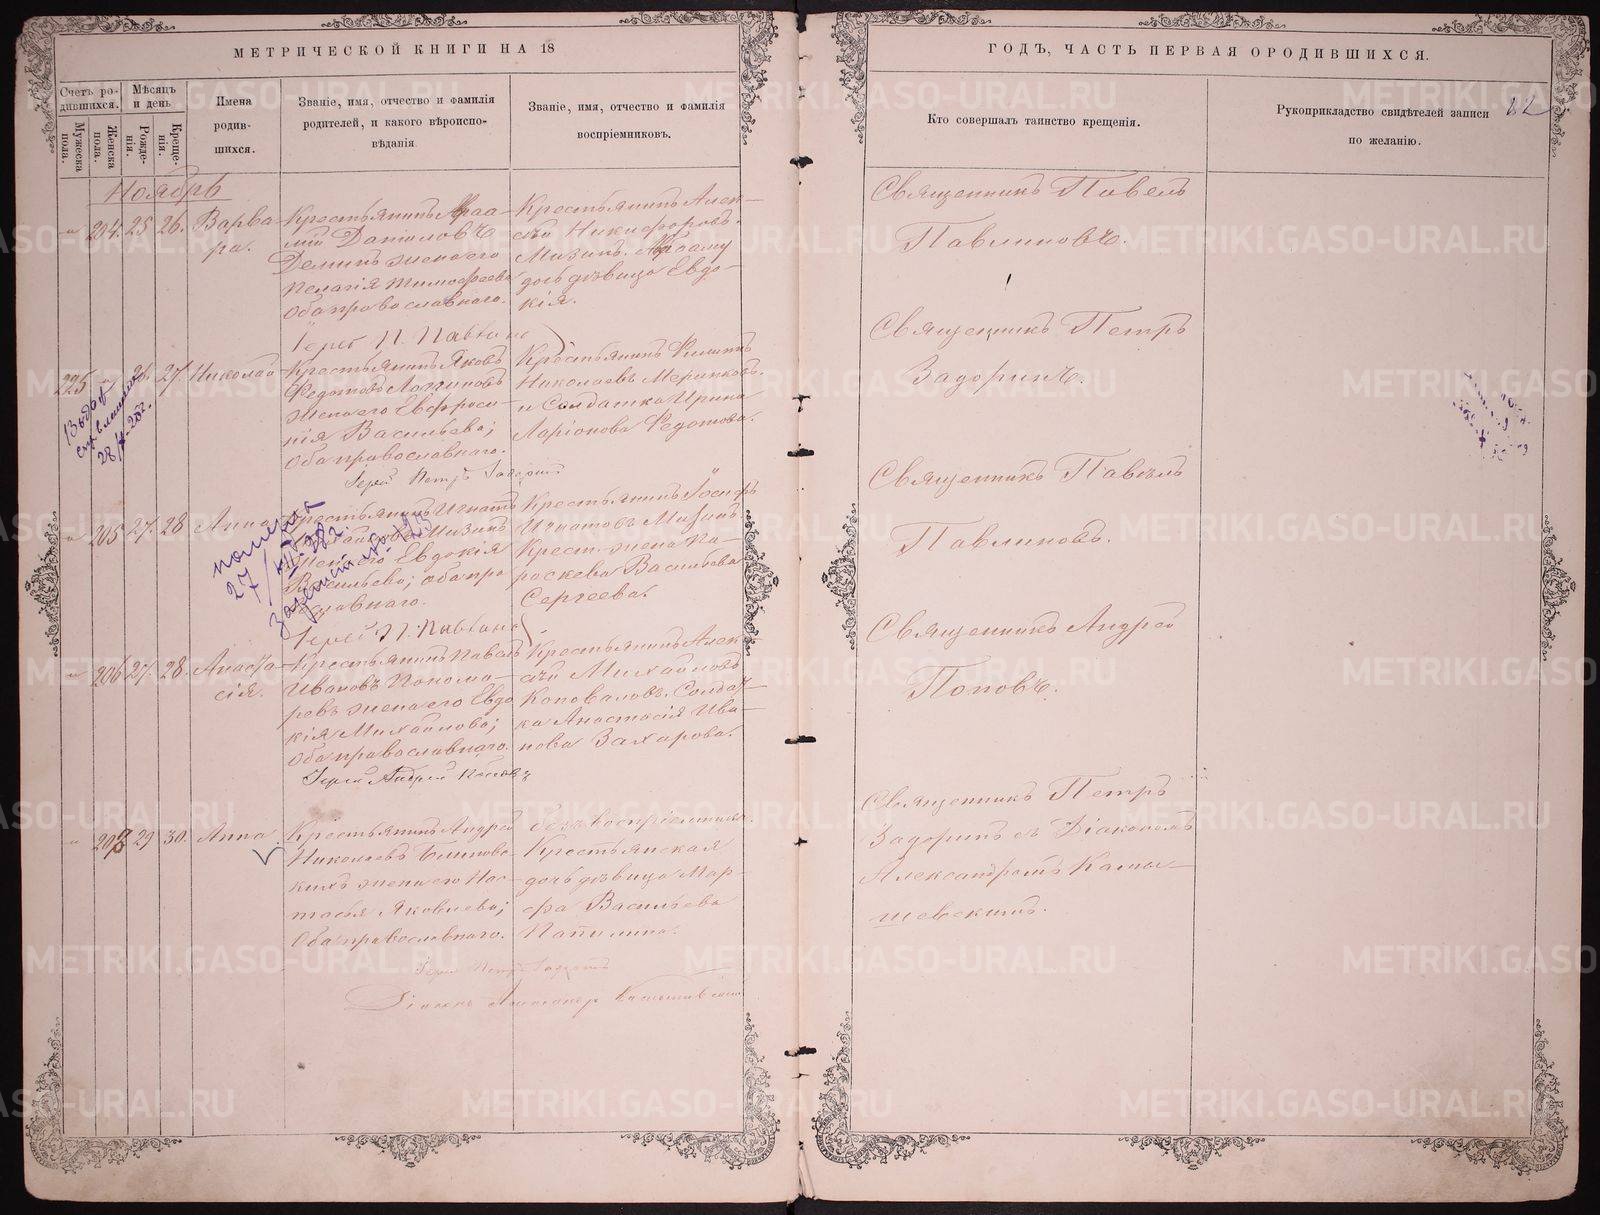 МЕТРИЧЕСКОЙ КНИГИ НА 18
ГОДЪ, ЧАСТЬ ПЕРВАЯ О РОДИВШИХСЯ.
Счетъ ро-
дившихся.
Мужеска
пола.
Женска
пола.
Мѣсяцъ
и день
Рожде-
нія.
Креще-
нія.
Имена
родив-
шихся.
Званіе, имя, отчество и фамилія
родителей, и какого вѣроиспо-
вѣданія.
Званіе, имя, отчество и фамилія
воспріемниковъ.
Кто совершалъ таинство крещенія.
Рукоприкладство свидѣтелей записи
по желанію.
Ноябрь
204. 25 26. Варва-
ра.
Крестьянинъ
Даниловъ
Деминъ жена его
Пелагія Тимофеева
оба православнаго.
Іерей П. Павлинов
Крестьянинъ Алек-
сѣй Никифоровъ
Мизинъ.
дочь дѣвица Евдо-
кія.
Священникъ Павелъ
Павлиновъ.
225 27. Николай
Крестьянинъ Яковъ
Федотовъ Логиновъ
жена его Евфроси-
нія Васильева;
оба православнаго.
Іерей Петръ Задоринъ
Крестьянинъ Филиппъ
Николаевъ
и Солдатка Ирина
Ларіонова Федотова.
Священникъ Петръ
Задоринъ.
205 27. 28 Анна
Крестьянинъ Игнатъ
Мизинъ
жена его Евдокія
Васильева; оба пра-
вославнаго.
Іерей П. Павлинов
Крестьянинъ Іосифъ
Игнатовъ Мизинъ.
Крест. жена Па-
раскева Васильева
Сергеева.
Священникъ Павелъ
Павлиновъ.
206 27. 28. Анаста-
сія.
Крестьянинъ Павелъ
Ивановъ Понома-
ревъ жена его Евдо
кія Михайлова;
Оба православнаго.
Іерей Андрей Поповъ
Крестьянинъ Алек-
сѣй Михайловъ
Коноваловъ. Солдат-
ка Анастасія Ива-
нова Захарова.
Священникъ Андрей
Поповъ.
207 29 30. Анна
Крестьянинъ Андрей
Николаевъ
жена его Нас-
тасья Яковлева;
Оба православнаго.
Іерей Петръ Задоринъ
Діаконъ Александр Камышевскій
без воспріемника.
Крестьянская
дочь дѣвица Мар-
фа Васильева
Священникъ Петръ
Задоринъ съ Діакономъ
Александромъ Камы-
шевскимъ.
METRIKI.GASO-URAL.RU